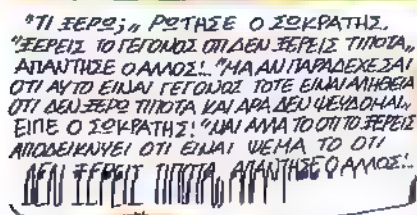 "ΤΙ ΞΕΡΩ;„ ΡΩΤΗΣΕ Ο ΣΩΚΡΑΤΗΣ.
"ΞΕΡΕΙΣ ΤΟ ΓΕΓΟΝΟΣ ΟΤΙ ΔΕΝ ΞΕΡΕΙΣ ΤΙΠΟΤΑ,
ΑΠΑΝΤΗΣΕ Ο ΑΛΛΟΣ!.. "ΜΑ ΑΝ ΠΑΡΑΔΕΧΕΣΑΙ
ΟΤΙ ΑΥΤΟ ΕΙΝΑΙ ΓΕΓΟΝΟΣ ΤΟΤΕ ΕΙΝΑΙ ΑΛΗΘΕΙΑ
ΟΤΙ ΔΕΝ ΞΕΡΩ ΤΙΠΟΤΑ ΚΑΙ ΑΡΑ ΔΕΝ ΨΕΥΔΟΜΑΙ„
ΕΙΠΕ Ο ΣΩΚΡΑΤΗΣ! "ΝΑΙ ΑΛΛΑ ΤΟ ΟΤΙ ΤΟ ΞΕΡΕΙΣ
ΑΠΟΔΕΙΚΝΥΕΙ ΟΤΙ ΕΙΝΑΙ ΨΕΜΑ ΤΟ ΟΤΙ
ΔΕΝ ΞΕΡΕΙΣ ΤΙΠΟΤΑ, ΑΠΑΝΤΗΣΕ Ο ΑΛΛΟΣ!..